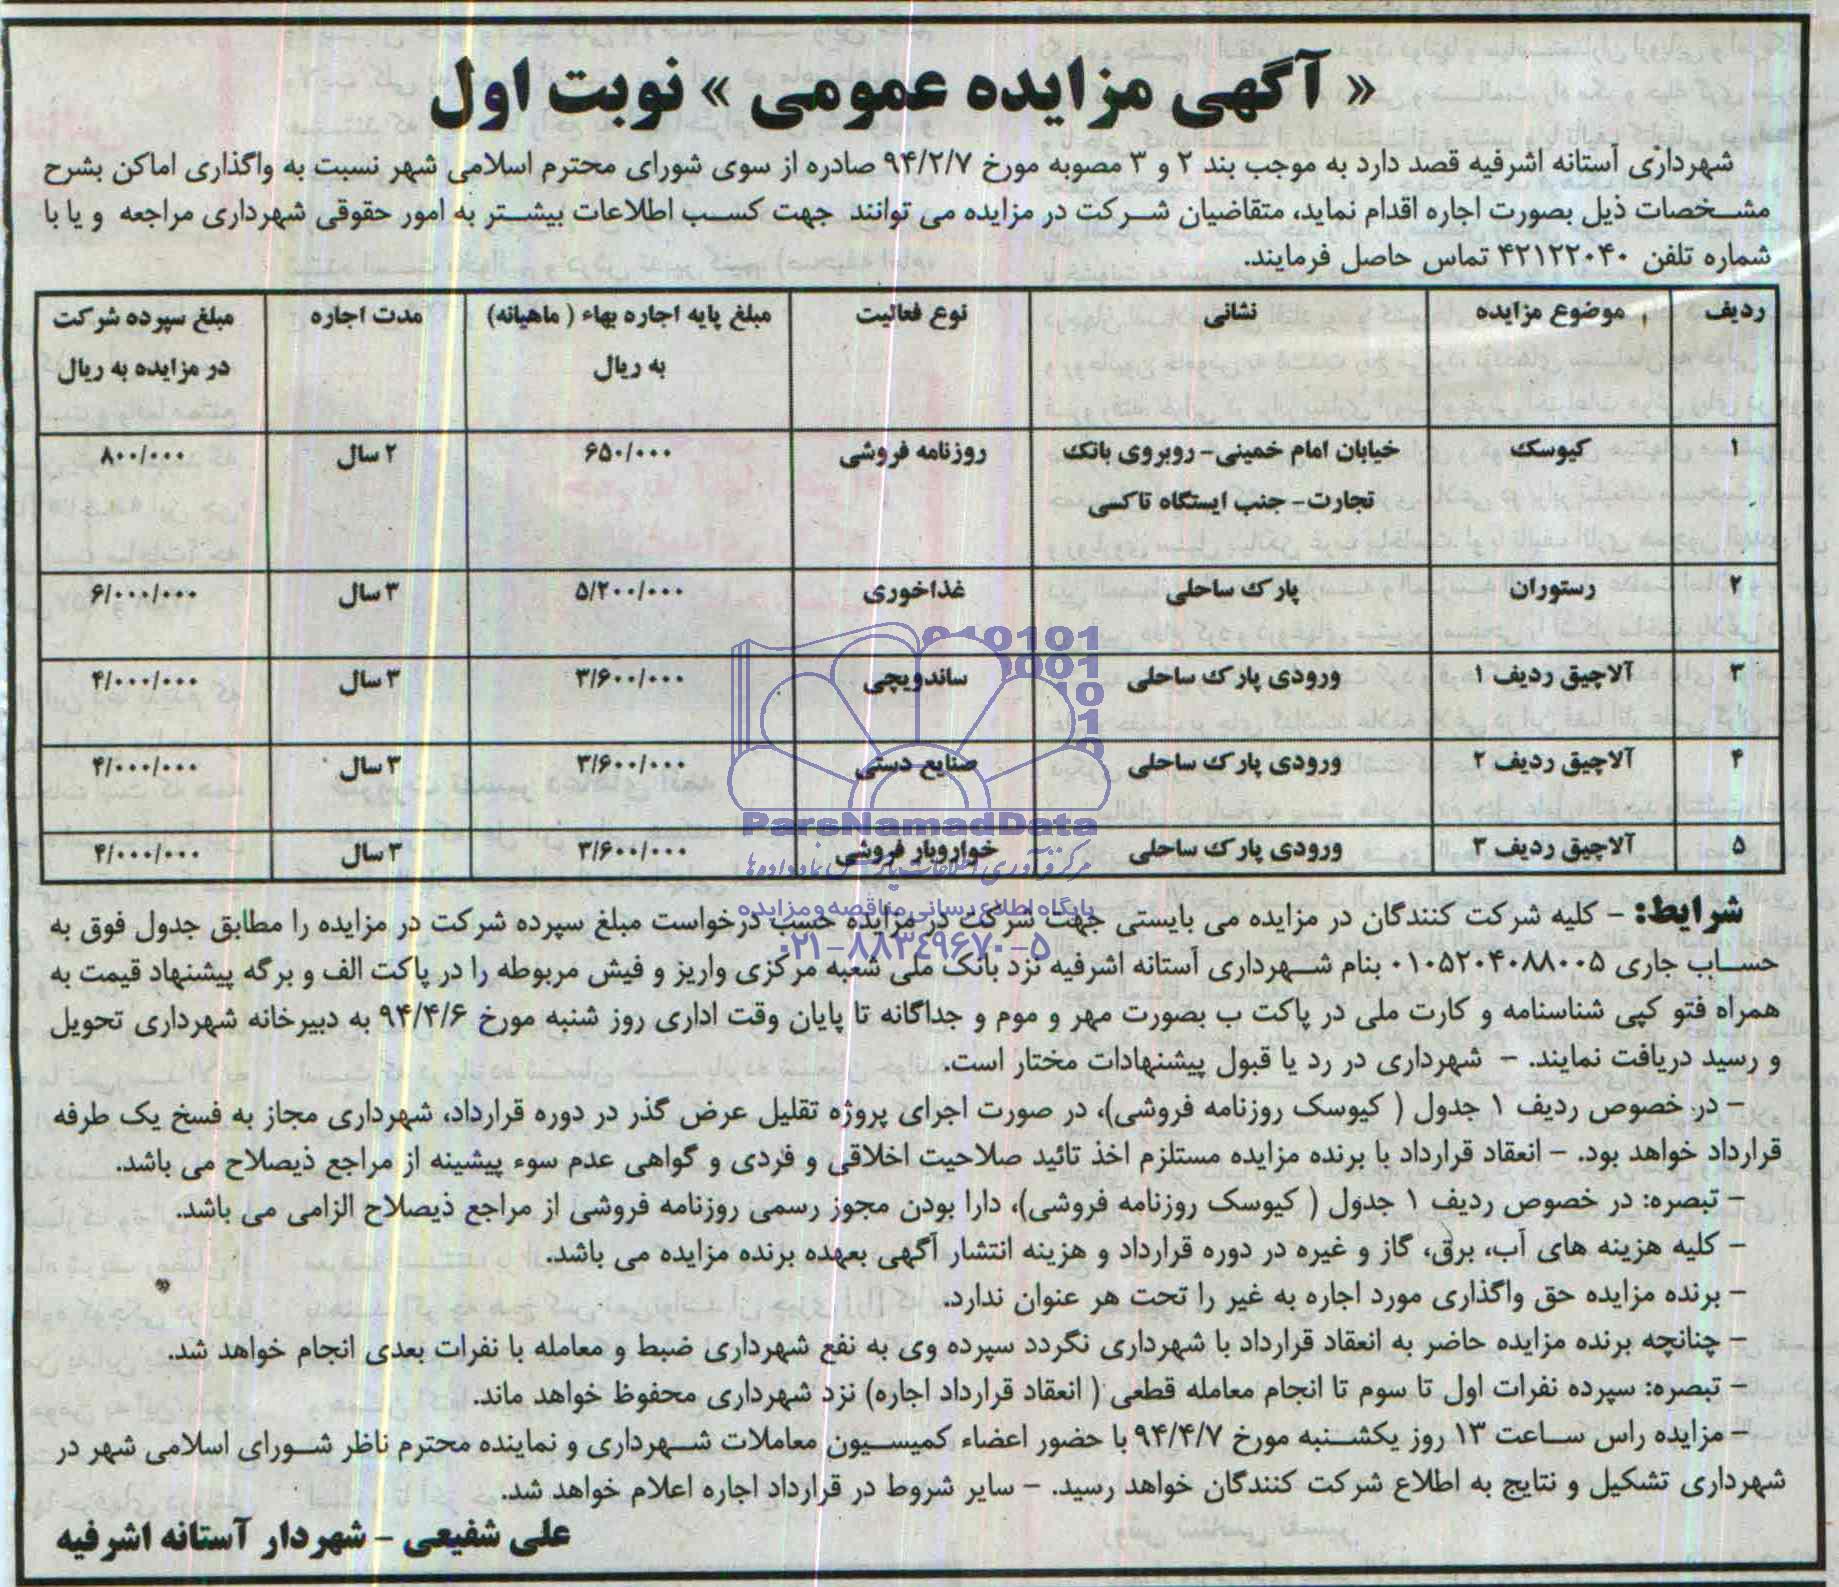 « آگهی مزایده عمومی » نوبت اول
شهرداری آستانه اشرفیه قصد دارد به موجب بند ۲ و ۳ مصوبه مورخ ۹۴/۲/۷ صادره از سوی شورای محترم اسلامی شهر نسبت به واگذاری اماکن بشرح
مشخصات ذیل بصورت اجاره اقدام نماید، متقاضیان شرکت در مزایده می توانند جهت کسب اطلاعات بیشتر به امور حقوقی شهرداری مراجعه و یا با
شماره تلفن ۴۲۱۲۲۰۴۰ تماس حاصل فرمایند.
ردیف موضوع مزایده نشانی نوع فعالیت مبلغ پایه اجاره بهاء ( ماهیانه) مدت اجاره مبلغ سپرده شرکت
به ریال در مزایده به ریال
۱ کیوسک خیابان امام خمینی- روبروی بانک روزنامه فروشی ۶۵۰/۰۰۰ ۲ سال ۸۰۰/۰۰۰
تجارت- جنب ایستگاه تاکسی
۲ رستوران پارک ساحلی غذاخوری ۵/۲۰۰/۰۰۰ ۳ سال ۶/۰۰۰/۰۰۰
۳ آلاچیق ردیف ۱ ورودی پارک ساحلی ساندویچی ۳/۶۰۰/۰۰۰ ۳ سال ۴/۰۰۰/۰۰۰
۴ آلاچیق ردیف ۲ ورودی پارک ساحلی صنایع دستی ۳/۶۰۰/۰۰۰ ۳ سال ۴/۰۰۰/۰۰۰
۵ آلاچیق ردیف ۳ ورودی پارک ساحلی خواروبار فروشی ۳/۶۰۰/۰۰۰ ۳ سال ۴/۰۰۰/۰۰۰
ParsNamadData
مرکز فرآوری اطلاعات پارس نماد داده ها
پایگاه اطلاع رسانی مناقصه و مزایده
۰۲۱-۸۸۳۴۹۶۷۰-۵
شرایط: - کلیه شرکت کنندگان در مزایده می بایستی جهت شرکت در مزایده حسب درخواست مبلغ سپرده شرکت در مزایده را مطابق جدول فوق به
حساب جاری ۰۱۰۵۲۰۴۰۸۸۰۰۵ بنام شهرداری آستانه اشرفیه نزد بانک ملی شعبه مرکزی واریز و فیش مربوطه را در پاکت الف و برگه پیشنهاد قیمت به
همراه فتو کپی شناسنامه و کارت ملی در پاکت ب بصورت مهر و موم و جداگانه تا پایان وقت اداری روز شنبه مورخ ۹۴/۴/۶ به دبیرخانه شهرداری تحویل
و رسید دریافت نمایند. - شهرداری در رد یا قبول پیشنهادات مختار است.
- در خصوص ردیف ۱ جدول ( کیوسک روزنامه فروشی)، در صورت اجرای پروژه تقلیل عرض گذر در دوره قرارداد، شهرداری مجاز به فسخ یک طرفه
قرارداد خواهد بود. - انعقاد قرارداد با برنده مزایده مستلزم اخذ تائید صلاحیت اخلاقی و فردی و گواهی عدم سوء پیشینه از مراجع ذیصلاح می باشد.
- تبصره: در خصوص ردیف ۱ جدول ( کیوسک روزنامه فروشی)، دارا بودن مجوز رسمی روزنامه فروشی از مراجع ذیصلاح الزامی می باشد.
- کلیه هزینه های آب، برق، گاز و غیره در دوره قرارداد و هزینه انتشار آگهی بعهده برنده مزایده می باشد.
- برنده مزایده حق واگذاری مورد اجاره به غیر را تحت هر عنوان ندارد.
- چنانچه برنده مزایده حاضر به انعقاد قرارداد با شهرداری نگردد سپرده وی به نفع شهرداری ضبط و معامله با نفرات بعدی انجام خواهد شد.
- تبصره: سپرده نفرات اول تا سوم تا انجام معامله قطعی ( انعقاد قرارداد اجاره) نزد شهرداری محفوظ خواهد ماند.
- مزایده راس ساعت ۱۳ روز یکشنبه مورخ ۹۴/۴/۷ با حضور اعضاء کمیسیون معاملات شهرداری و نماینده محترم ناظر شورای اسلامی شهر در
شهرداری تشکیل و نتایج به اطلاع شرکت کنندگان خواهد رسید. - سایر شروط در قرارداد اجاره اعلام خواهد شد.
علی شفیعی - شهردار آستانه اشرفیه